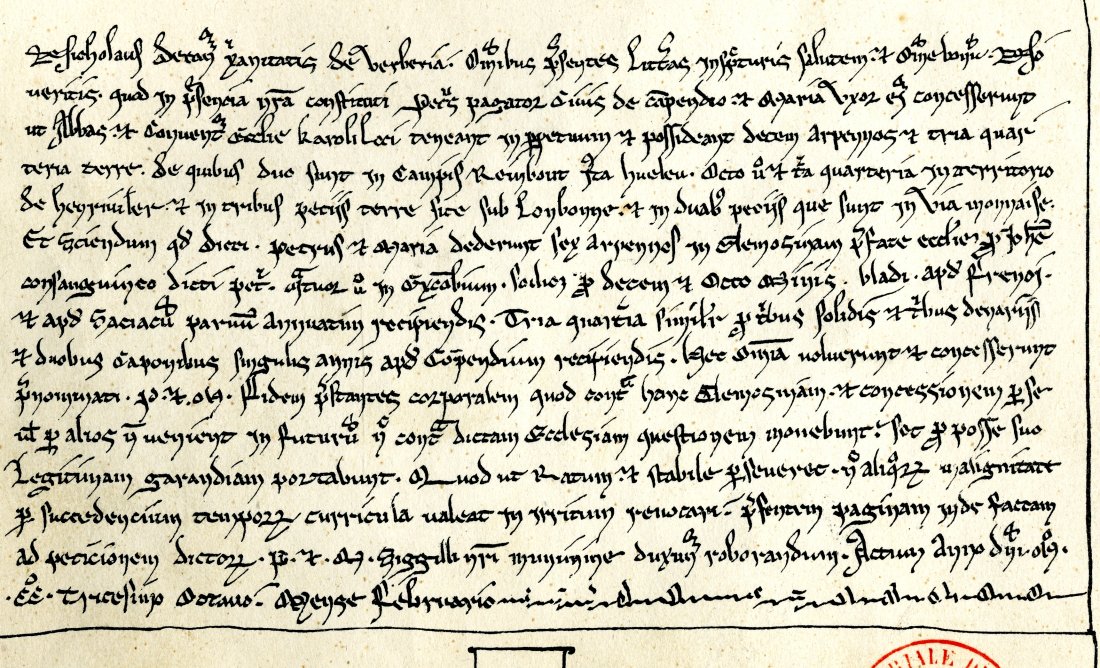 Nicholaus decanus xpianitatis de Verberia. Omnibus p̃sentes litt̃as inspecturis salutem ⁊ omne bonum. Noso
veritis. quod in p̃sencia nr̃a constituti Petrus pagator civis de c̃apendio ⁊ Maria Uxor ei9 concesserunt
ut Abbas ⁊ Convent9 Ecclie karoliloci teneant in ꝑpetuum ⁊ possideant decem arpennos ⁊ tria quar
teria terre. de quibus duo sunt in Campis Reinbout iuxta hueleu. Octo ũ ⁊ t̃a quarteria in territorio
de henriuiler. ⁊ in tribus peciis terre site sub Lonbonne. ⁊ in duab9 peciis que sunt in Via monnaise.
Et Sciendum qd̃ dicti. petrus ⁊ Maria dederunt sex Arpennos in Elemosinam p̃fate ecclie ꝓ Ioh̃e
consanguineo dicti pet̃. q̃tuor ũ in excãbium. scilicet ꝓ decem ⁊ octo Minis. bladi. apd̃ frenoi.
⁊ apd̃ Saciacũ parvũ Annuatim recipiendis. Tria quart̃ia simil̃r ꝓ t̃bus solidis ⁊ t̃bus denariis
⁊ duobus Caponibus singulis annis apd̃ Cõpendium recipiendis. Hec om̃ia voluerunt ⁊ concesserunt
p̃nominati. P. ⁊. M. fidem p̃stantes corporalem quod cont̃ hanc Elemosinam. ⁊ concessionem ꝑ se
ul̃ ꝑ alios ñ venient in futurũ ñ cont̃ dictam Ecclesiam questionem movebunt. set ꝓ posse suo
Legitimam garandiam portabunt. Quod ut Ratum ⁊ stabile ꝑseveret. ñ aliq̃ꝝ malignitate
ꝑ succedencium tempoꝝ curricula valeat in irritum revocari. p̃sentem paginam inde factam
ad peticionem dictoꝝ. P. ⁊. M. Siggilli nr̃i munimine duxim9 roborandum. Actum Anno dñi. Mº.
.CCº. Tricesimo Octavo. Mense Februario